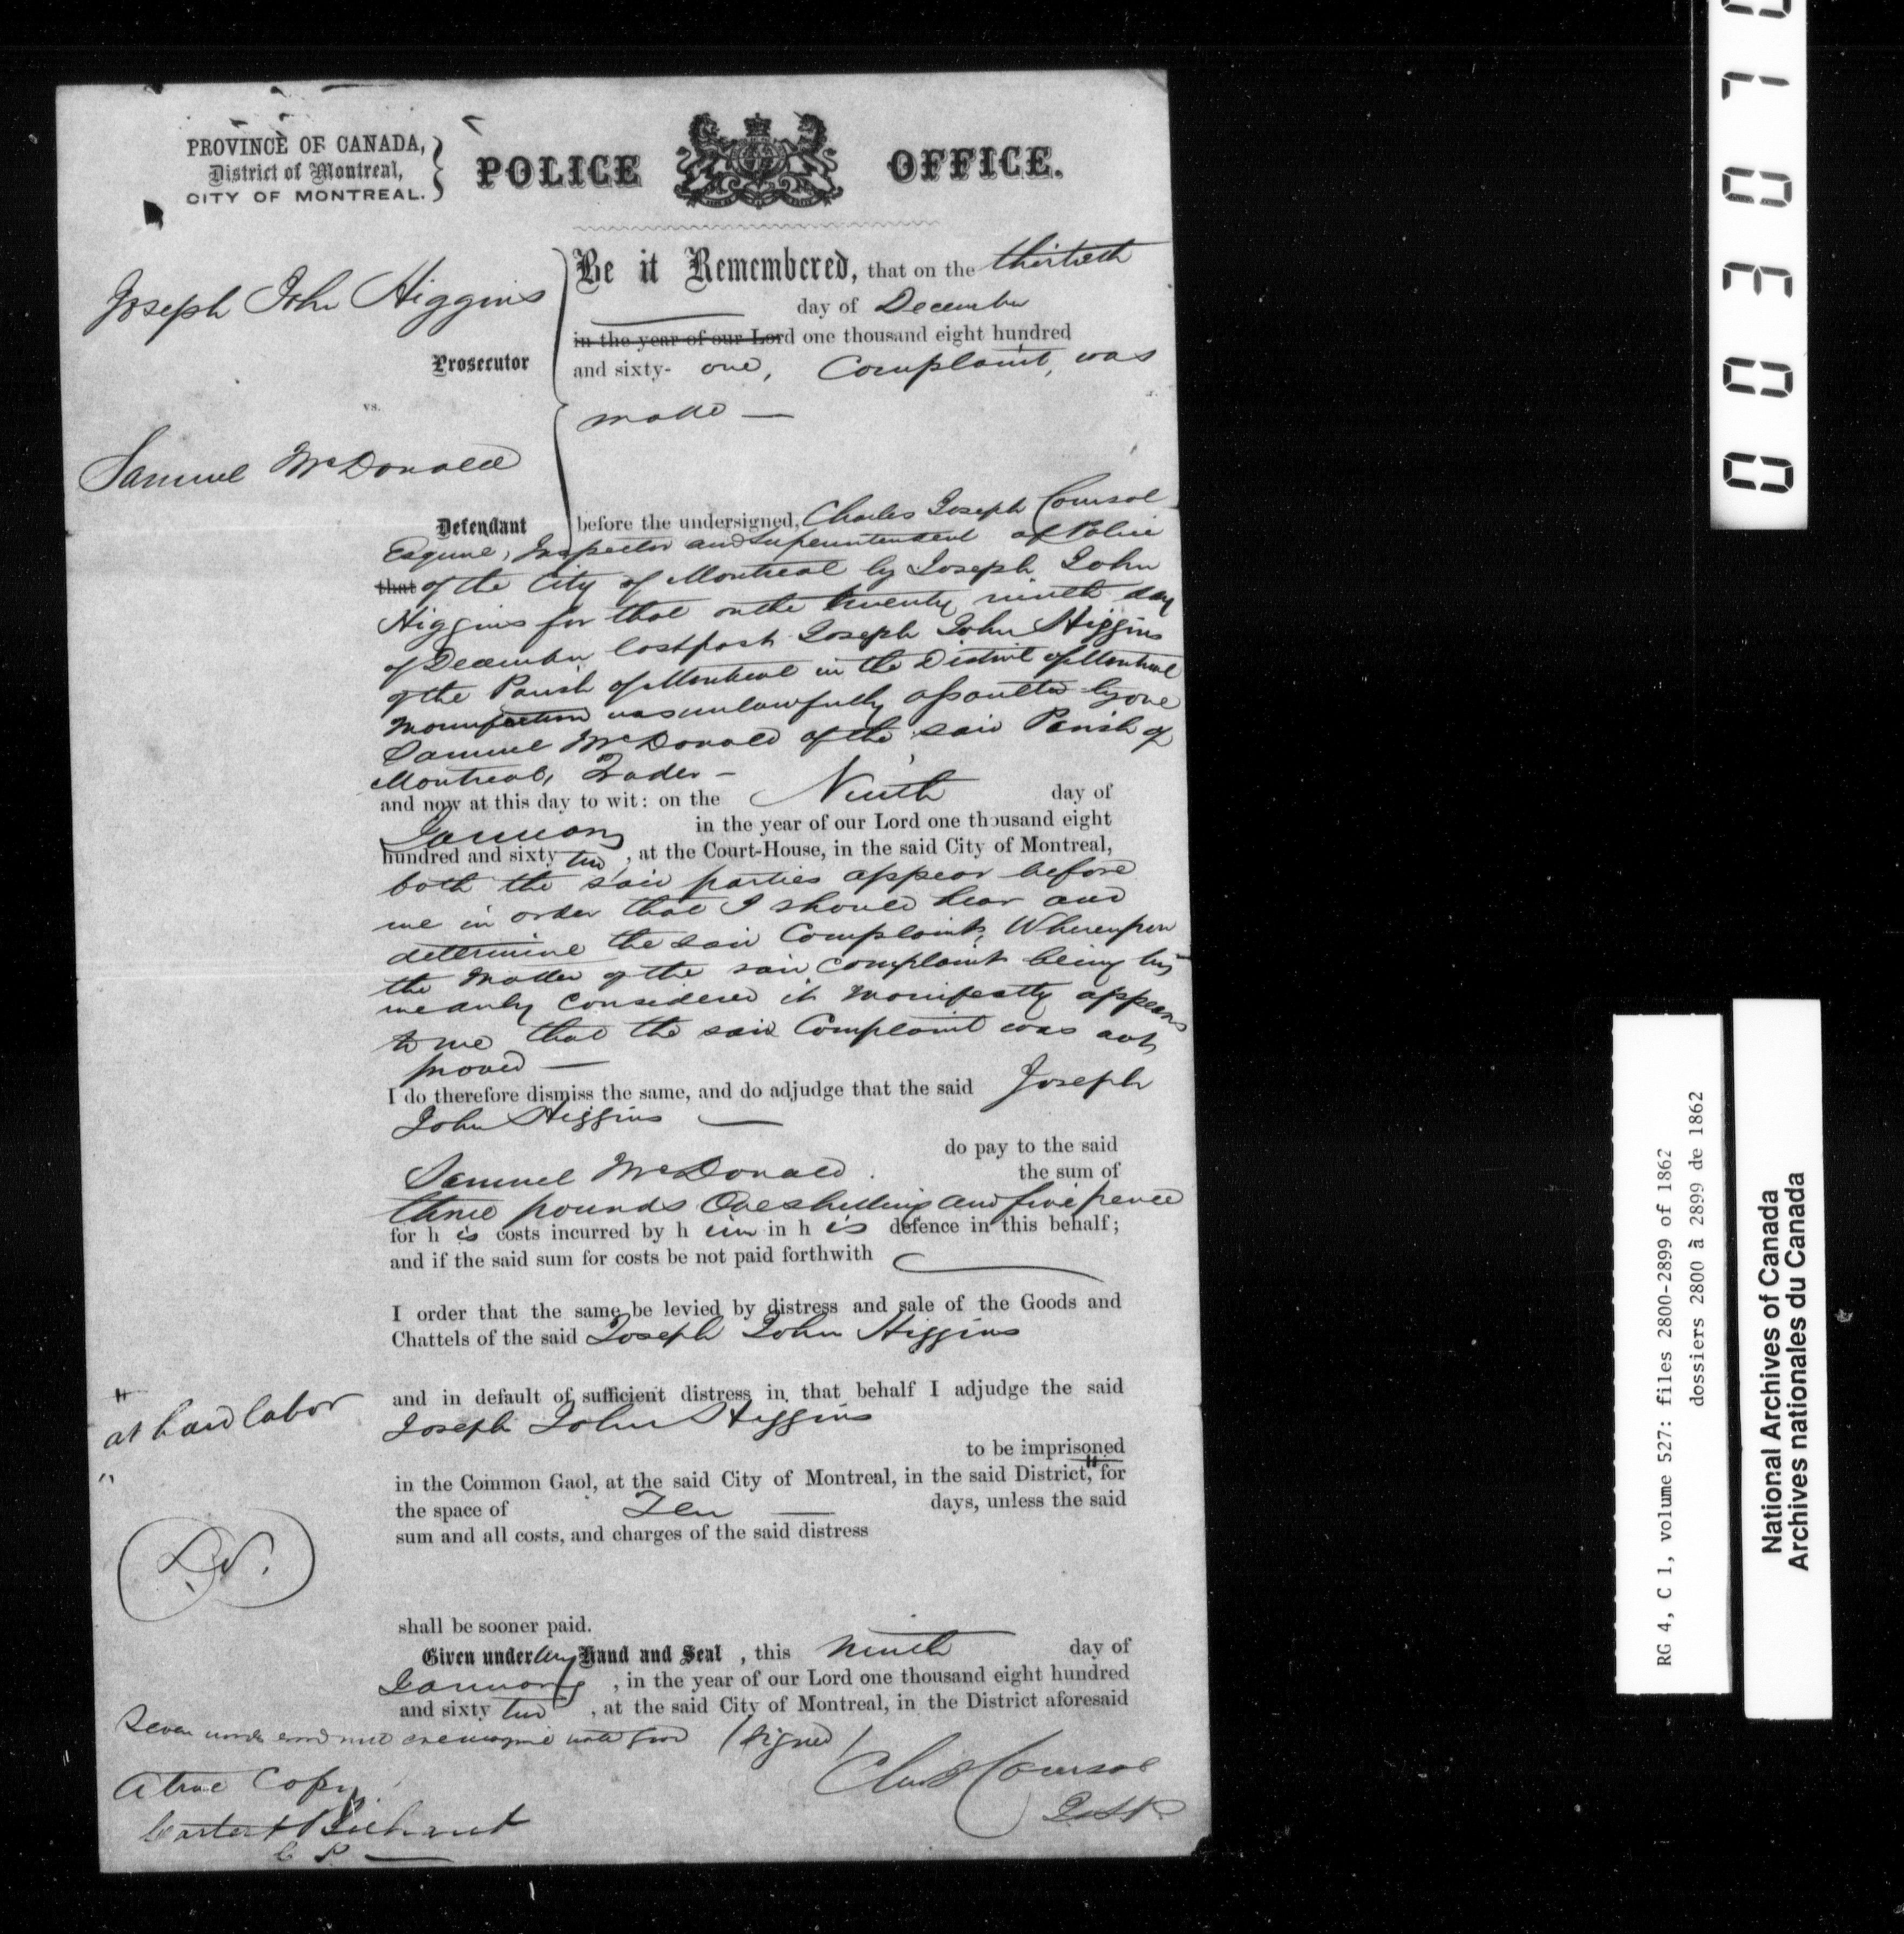 PROVINCE OF CANADA,
District of Montreal,
CITY OF MONTREAL.
POLICE OFFICE.
Joseph John Higgins
Prosecutor
vs.
Samuel McDonald
Defendant
Be it Remembered, that on the thirtieth
day of December
in the year of our Lord one thousand eight hundred
and sixty- one, Complaint, was
made —
before the undersigned, Charles Joseph Coursol
Esquire, Inspector and Superintendent of Police
that of the City of Montreal by Joseph John
Higgins for that on the twenty ninth day
of December last past Joseph John Higgins
of the Parish of Montreal in the District of Montreal
was unlawfully assaulted by one
Samuel McDonald of the said Parish of
Montreal, Trader —
and now at this day to wit: on the Ninth day of
January in the year of our Lord one thousand eight
hundred and sixty two, at the Court-House, in the said City of Montreal,
both the said parties appear before
me in order that I should hear and
determine the said Complaint, Whereupon
the Matter of the said complaint being by
me duly considered it manifestly appears
to me that the said Complaint was not
proved —
I do therefore dismiss the same, and do adjudge that the said Joseph
John Higgins —
do pay to the said
Samuel McDonald. the sum of
three pounds One shilling and five pence
for h is costs incurred by h im in h is defence in this behalf;
and if the said sum for costs be not paid forthwith
I order that the same be levied by distress and sale of the Goods and
Chattels of the said Joseph John Higgins
and in default of sufficient distress in that behalf I adjudge the said
Joseph John Higgins
to be imprisoned
" at hard labor "
in the Common Gaol, at the said City of Montreal, in the said District," for
the space of Ten — days, unless the said
sum and all costs, and charges of the said distress
shall be sooner paid.
Given under my Hand and Seal, this ninth day of
January, in the year of our Lord one thousand eight hundred
and sixty two, at the said City of Montreal, in the District aforesaid
Seven words
(Signed)
Chs J Coursol
A true Copy
C P —
003070
RG 4, C 1, volume 527: files 2800-2899 of 1862
dossiers 2800 à 2899 de 1862
National Archives of Canada
Archives nationales du Canada